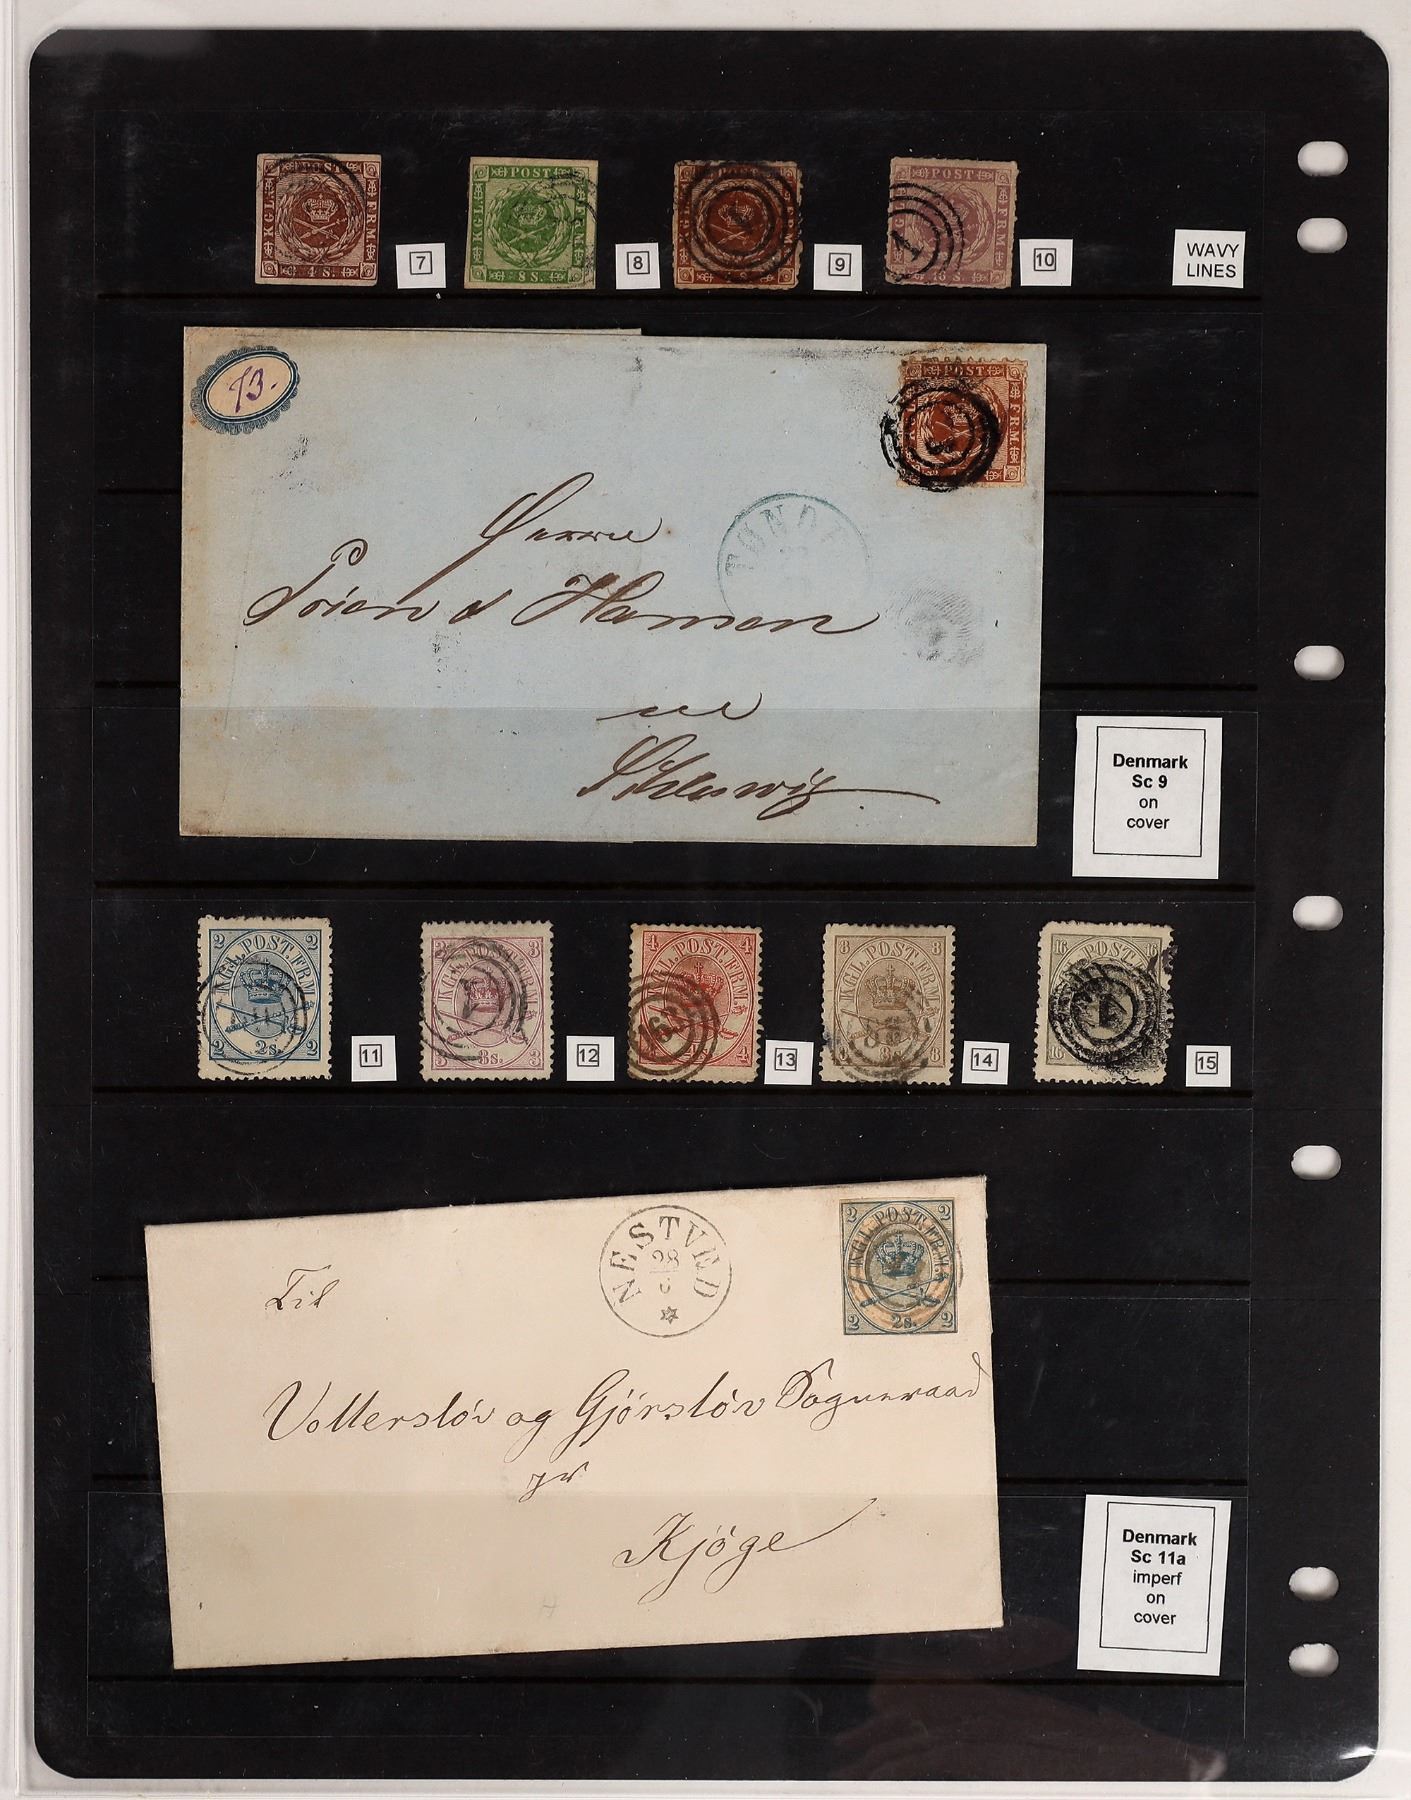 POST
KGL
FRM
4 S.
7
POST
KGL
FRM
8 S.
8
9
POST
FRM
16 S.
1
10
WAVY
LINES
73.
POST
FRM
TØNDE
Herrn
Hansen
in
Schleswig
Denmark
Sc 9
on
cover
2 2
KGL. POST. FRM.
2 2s. 2
11
3 3
KGL. POST. FRM.
3 3s. 3
12
4 4
KGL. POST. FRM.
4
13
8 8
KGL. POST. FRM.
8s. 8
14
16 16
POST
16
1
15
NESTVED
28
2 2
KGL. POST. FRM.
2 2s. 2
Til
Vollerslöv og Gjörslöv Sogneraad
pr
Kjöge
Denmark
Sc 11a
imperf
on
cover